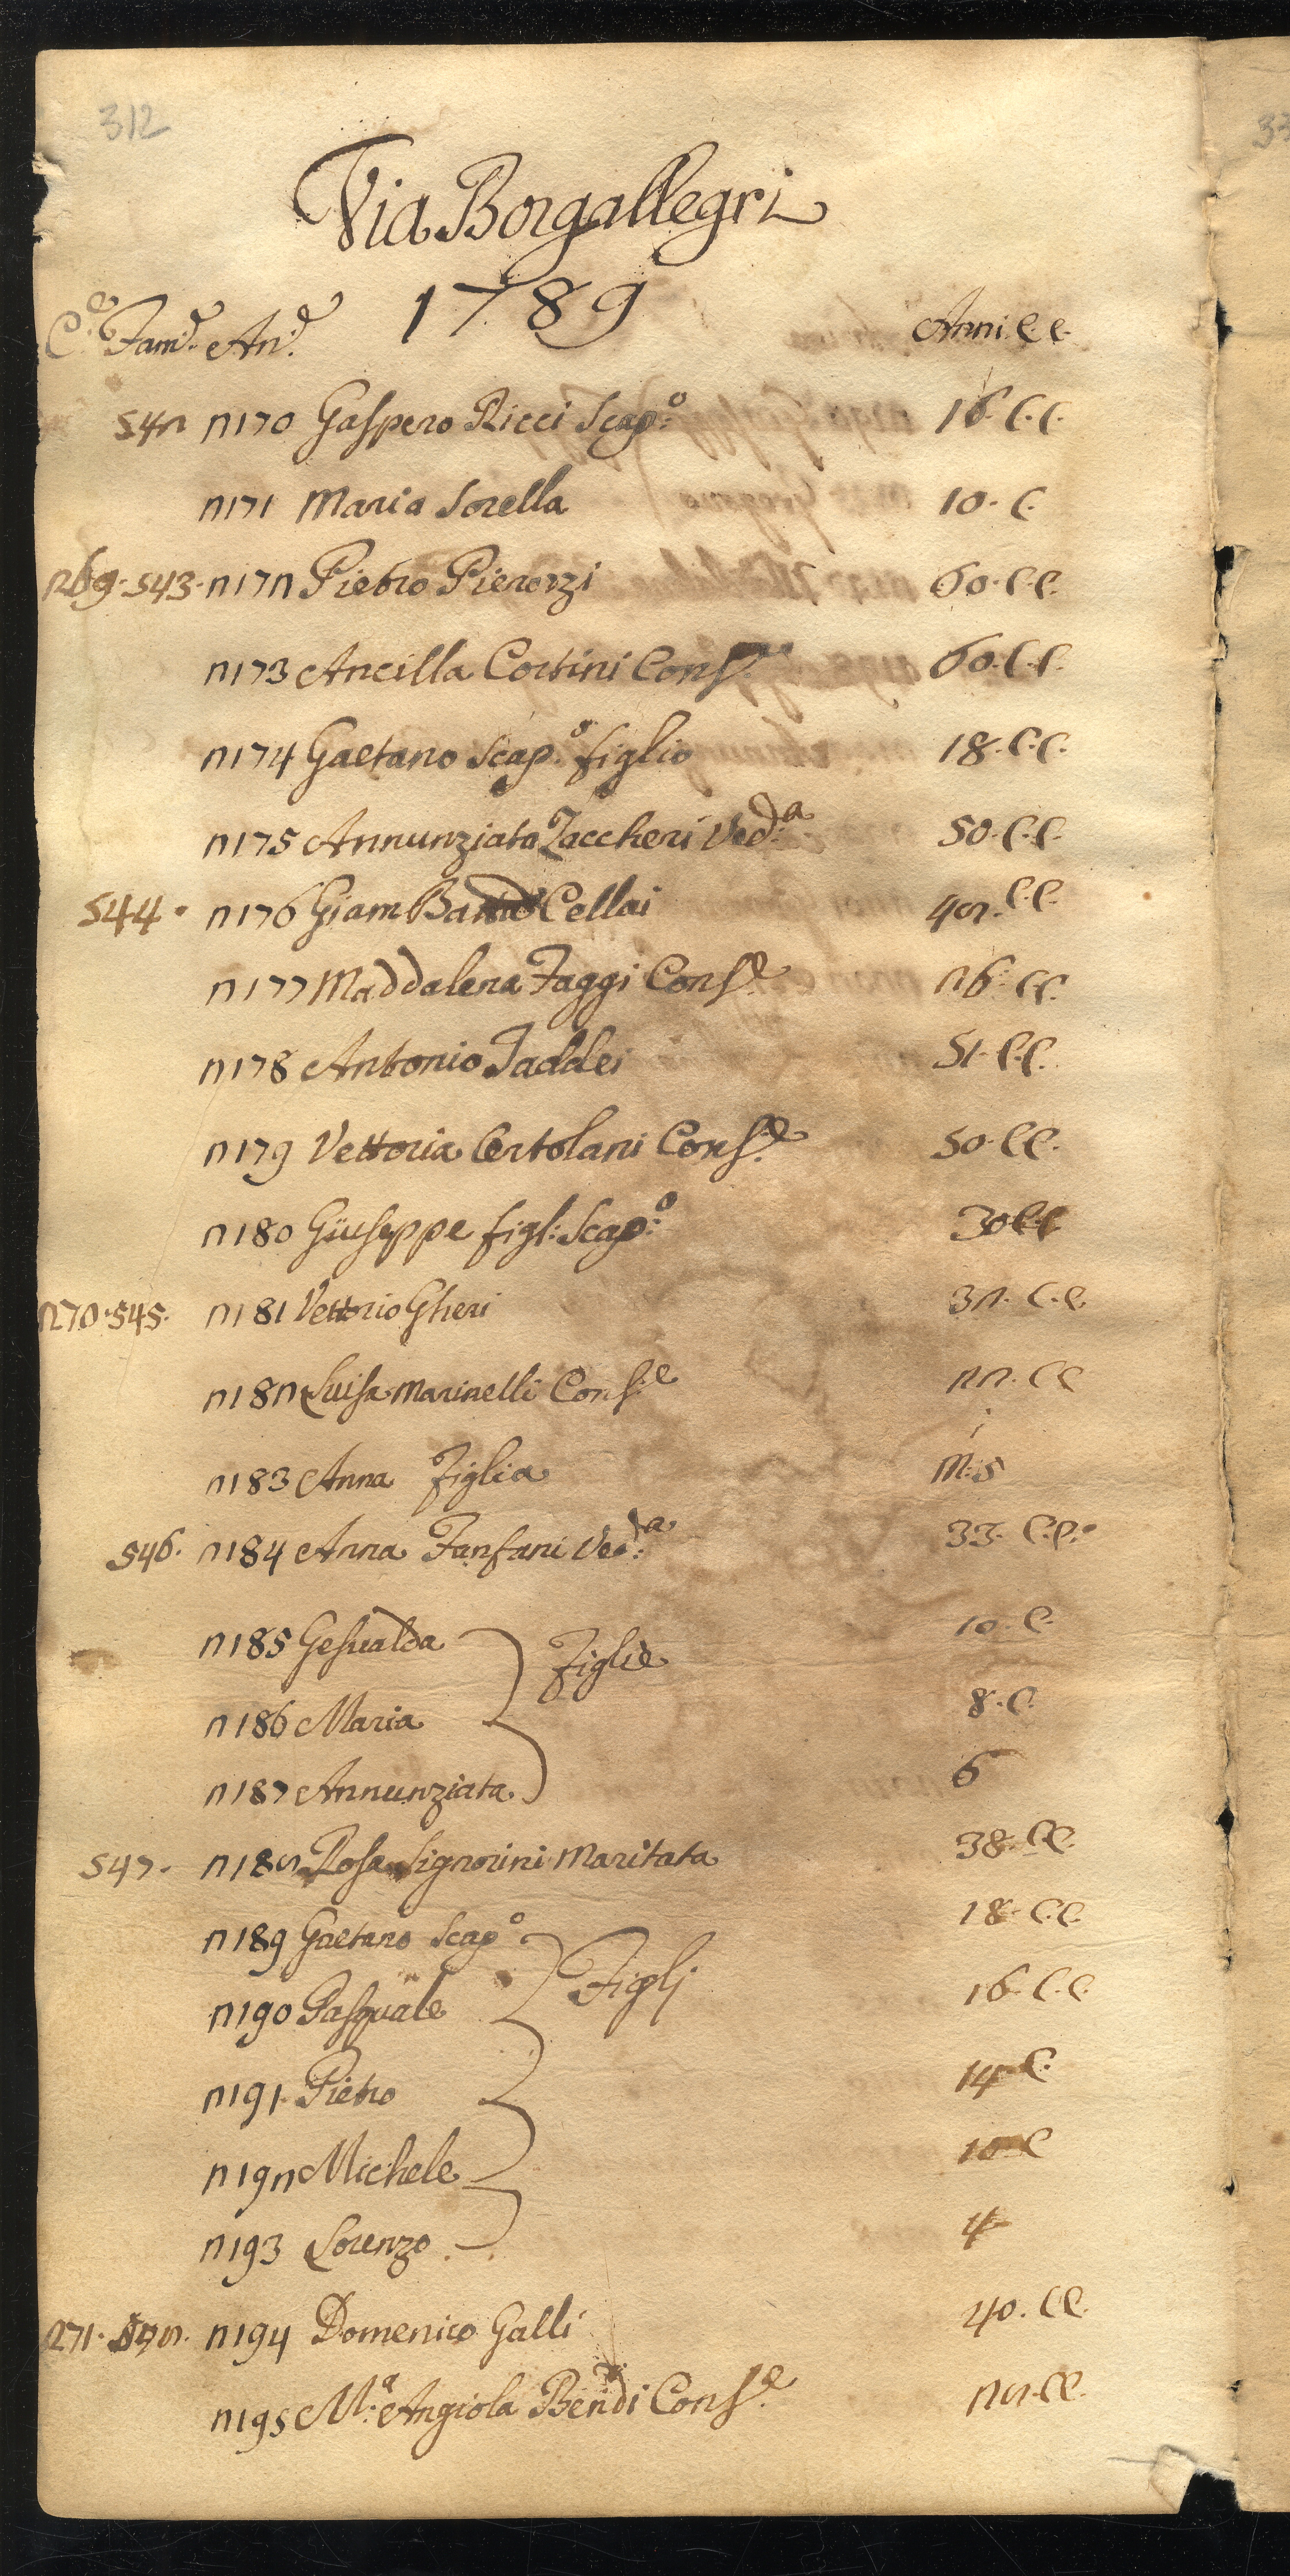 312
Via Borgallegri
1789
C.e Fam.e An.e Anni. C.C.
542 2170 Gaspero Ricci Scap:o 16. C.C.
2171 Maria Sorella 10. C.
269. 543. 2172 Pietro Pierozzi 60. C.C.
2173 Ancilla Cortini Cons.e 60. C.C.
2174 Gaetano Scap.o figlio 18. C.C.
2175 Annunziata Zaccheri Ved:a 50. C.C.
544. 2176 Giam Batta Cellai 48. C.C.
2177 Maddalena Faggi Cons.e 26. C.C.
2178 Antonio Taddei 51. C.C.
2179 Vettoria Certolani Cons.e 50. C.C.
2180 Giuseppe figl: Scap:o 30 C.C.
270. 545. 2181 Vettorio Gheri 32. C.C.
2182 Luisa Marinelli Cons.e 22. C C
2183 Anna Figlia M: 5
546. 2184 Anna Fanfani Ved:a 33. C.C.
2185 Gesualda Figlie 10. C.
2186 Maria 8. C.
2187 Annunziata 6
547. 2188 Rosa Signorini Maritata 38. C C.
2189 Gaetano Scap.o Figlj 18. C.C.
2190 Pasquale 16. C.C.
2191. Pietro 14 C.
2192 Michele 10 C
2193 Lorenzo 4
271. 548. 2194 Domenico Galli 40. C C.
2195 M:a Angiola Bendi Cons.e 28. C C.